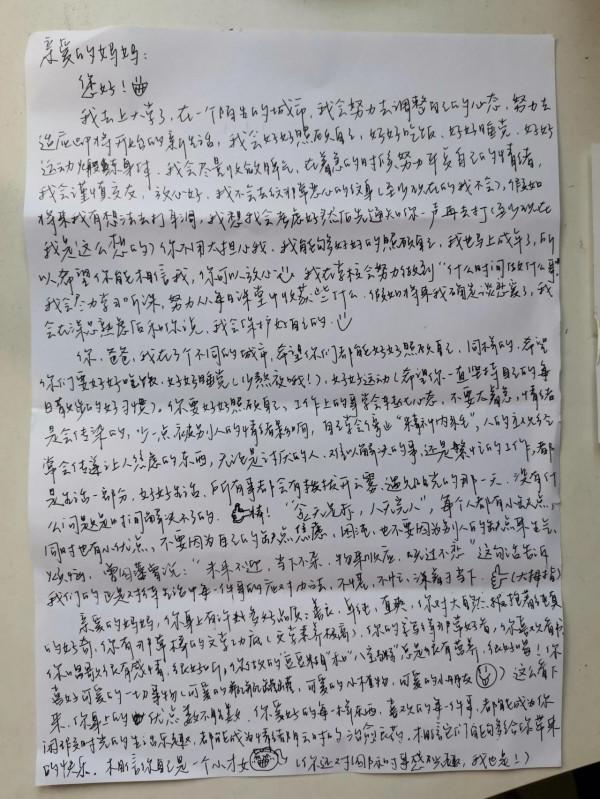 亲爱的妈妈：
您好！
我去上大学了，在一个陌生的城市，我会努力去调整自己的心态，努力去
适应即将开始的新生活，我会好好照顾自己，好好吃饭，好好睡觉，好好
运动锻炼身体，我会尽量收敛脾气，在着急的时候努力平复自己的情绪，
我会谨慎交友，放心好，我不会去纹那草恶心的纹身（至少现在的我不会），假如
将来我有想法去打耳洞，我想我会考虑好然后先通知你一声再去打（至少现在
我是这么想的）你不用太担心我，我能够好好的照顾自己，我也马上成年了，所
以希望你能相信我，你可以放心。我在学校会努力做到“什么时间做什么事”
我会尽力学习听课，努力从每日课堂中收获些什么，假如将来我确定谈恋爱了，我
会在深思熟虑后和你说，我会保护好自己的。
你，爸爸，我在3个不同的城市，希望你们都能好好照顾自己，同样的，希望
你们要好好吃饭，好好睡觉（少熬夜哦！），好好运动（希望你一直坚持自己的每
日散步的好习惯）。你要好好照顾自己，工作上的事学会平稳心态，不要太着急，情绪
是会传染的，少一点被别人的情绪影响，
单会传递让人焦虑的东西，无论是讨厌的人，难以解决的事，还是繁忙的工作，都
是生活一部分，好好生活，所有事都会有拨开云雾遇见阳光的那一天，没有什
么问题是时间解决不了的。棒！“金无足赤，人无完人”，每个人都有小缺点，
同时也有小优点，不要因为自己的缺点焦虑，困惑，也不要因为别人的缺点来生气，
烦恼，曾国藩曾说：“未来不迎，当下不杂，物来顺应，既过不恋”这句话告诉
我们的正是对待生活中每一件事的应对办法，不畏，不忙，深耕于当下。（大拇指）
亲爱的妈妈，你身上有许许多多好品质：善良，单纯，直爽，你对大自然抱着纯真
的好奇，你有那草稿的文学功底（文学素养极高），你的字写得那草好看，你喜欢看书
你唱歌很有感情，很好听，你做的豆豆粗“和”八宝粥总是很有营养，很好喝！（你
喜好可爱的一切事物），可爱的小植物，可爱的小朋友）这么看下
来，你身上的优点数不胜数，你爱好的每一样东西，喜欢的每一件事，都能成为你
闲暇时光的生活乐趣，都能成为情绪阴云时的治愈良药，相信它们能够给你带来
的快乐，相信你自己是一个小才女（你还对国际时事感兴趣，我也是！）